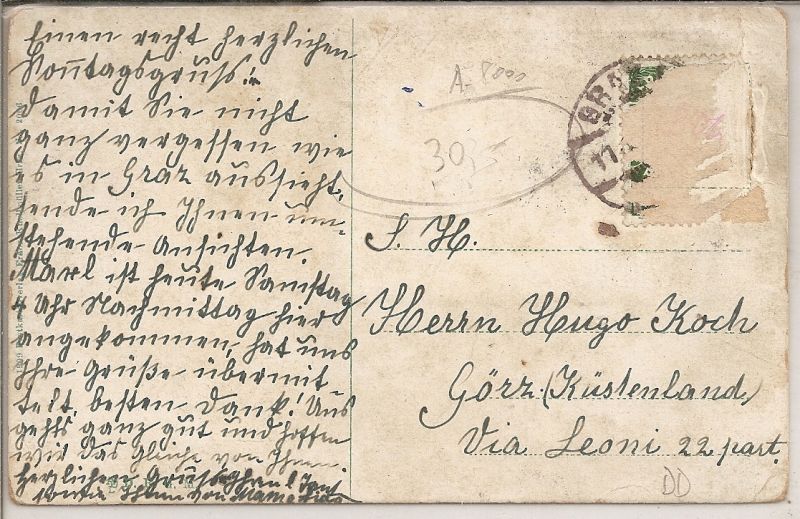 Einen recht herzlichen
Sonntagsgruss!
Damit Sie nicht
ganz vergessen wie
es in Graz aussieht,
sende ich Ihnen um-
stehende Ansichten.
Marl ist heute Samstag
4 Uhr Nachmittag hier
angekommen, hat uns
Ihre Grüße übermit
telt, besten Dank! Uns
gehts ganz gut und hoffen
wir das Gleiche von Ihnen.
Herzlichen Gruss
Ihnen von Mama
A. 8000
30
GRA
17
S. H.
Herrn Hugo Koch
Görz (Küstenland)
Via Leoni 22 part.
DD